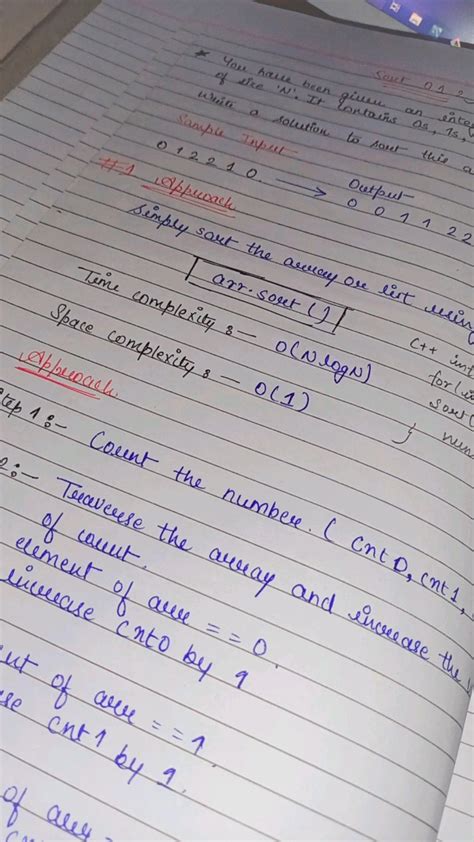 Sort 0 1 2
* You have been given an inte
of size 'N'. It contains 0s, 1s,
Write a solution to sort this a
Sample Input
Output
0 1 2 2 1 0 → 0 0 1 1 2 2
#1 Approach
Simply sort the array or list using
arr.sort()
Time complexity :- O(N log N)
Space complexity :- O(1)
C++ int
for(
sort(
} num
Approach.
tep 1:- Count the number. ( Cnt0, cnt1,
2:- Traverse the array and increase the
of count.
element of arr == 0.
increase cnt0 by 1
nt of arr == 1
se cnt1 by 1.
of arr